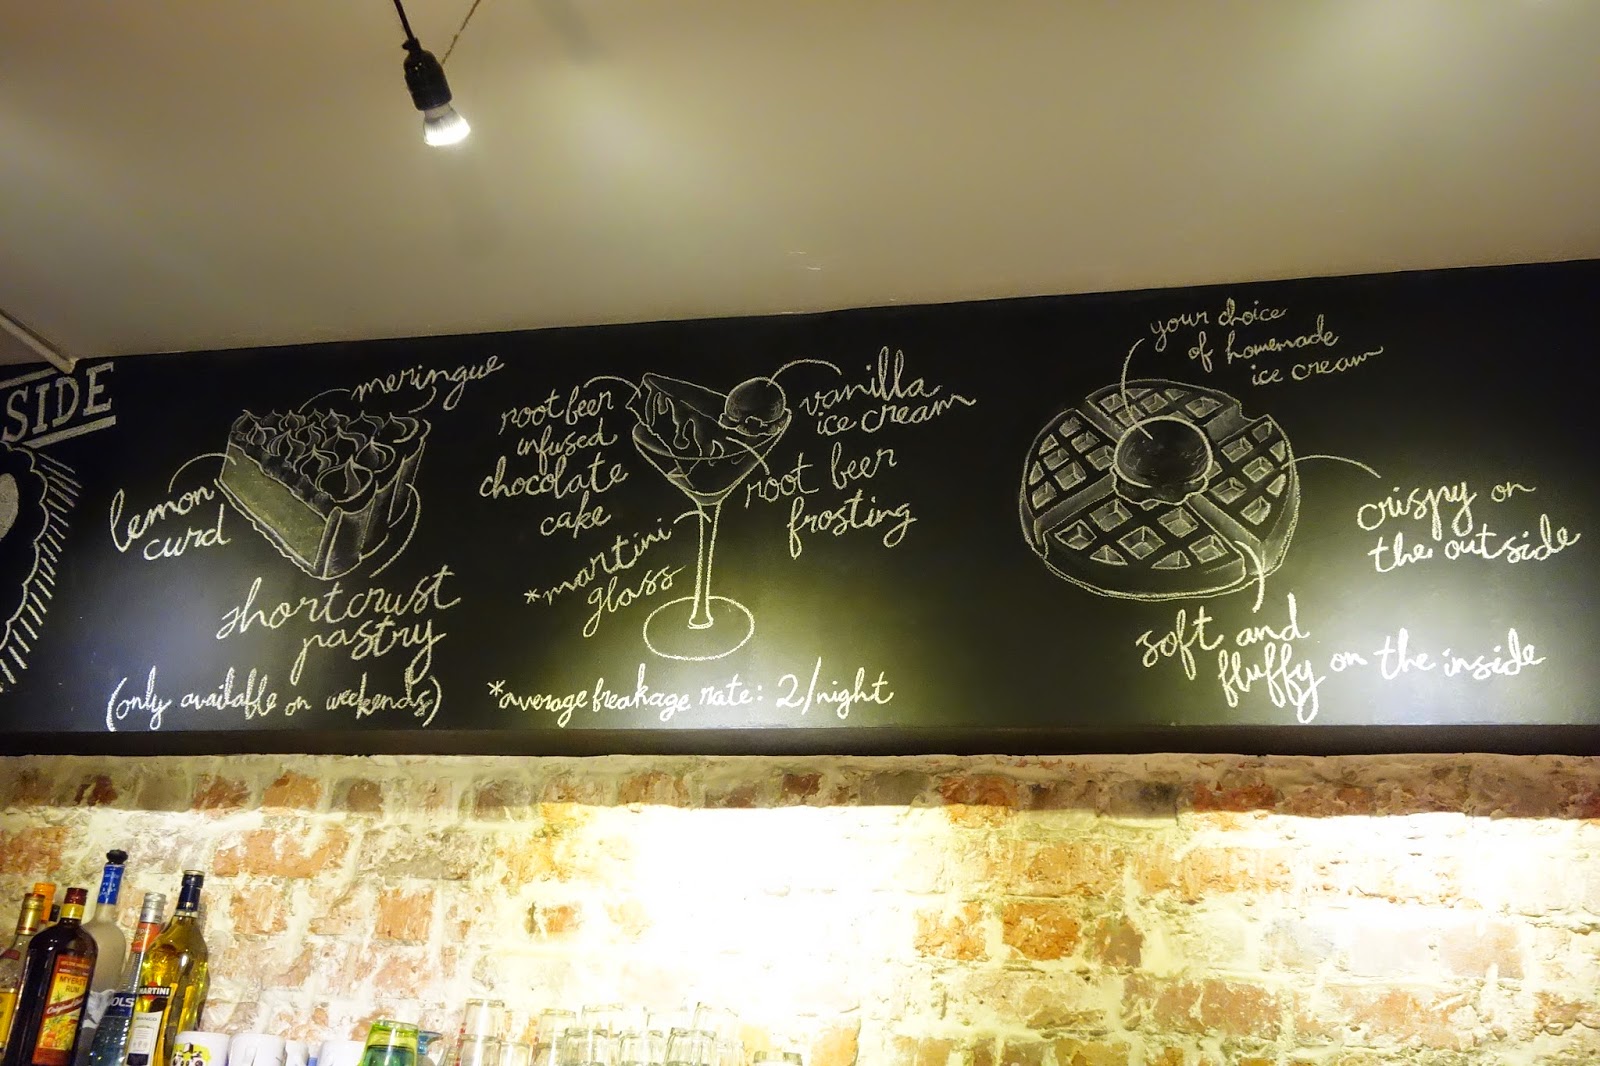 SIDE
meringue
lemon
curd
shortcrust
pastry
(only available on weekends)
root beer
infused
chocolate
cake
vanilla
ice cream
root beer
frosting
*martini
glass
*average breakage rate: 2/night
your choice
of homemade
ice cream
crispy on
the outside
soft and
fluffy on the inside
MYERS'S
RUM
MARTINI